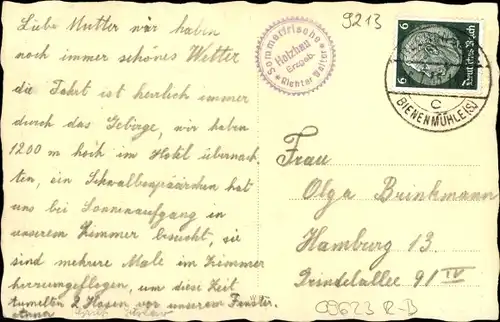 Liebe Mutter wir haben
noch immer schönes Wetter
die Fahrt ist herrlich immer
durch das Gebirge, wir haben
1200 m hoch im Hotel übernach,
ten, ein Schwalbenpäärchen hat
uns bei Sonnenaufgang in
unserem Zimmer besucht, sie
sind mehrere Male im Zimmer
herrumgeflogen, um diese Zeit
tumelten 2 Hasen vor unserem Fenster.
Anna
9213
Sommerfrische
Holzhau
Erzgeb.
Richter
6 6
Deutsches Reich
c
BIENENMÜHLE (S)
Frau
Olga Brinkmann
Hamburg 13
Grindelallee 91 IV
09623 R-B